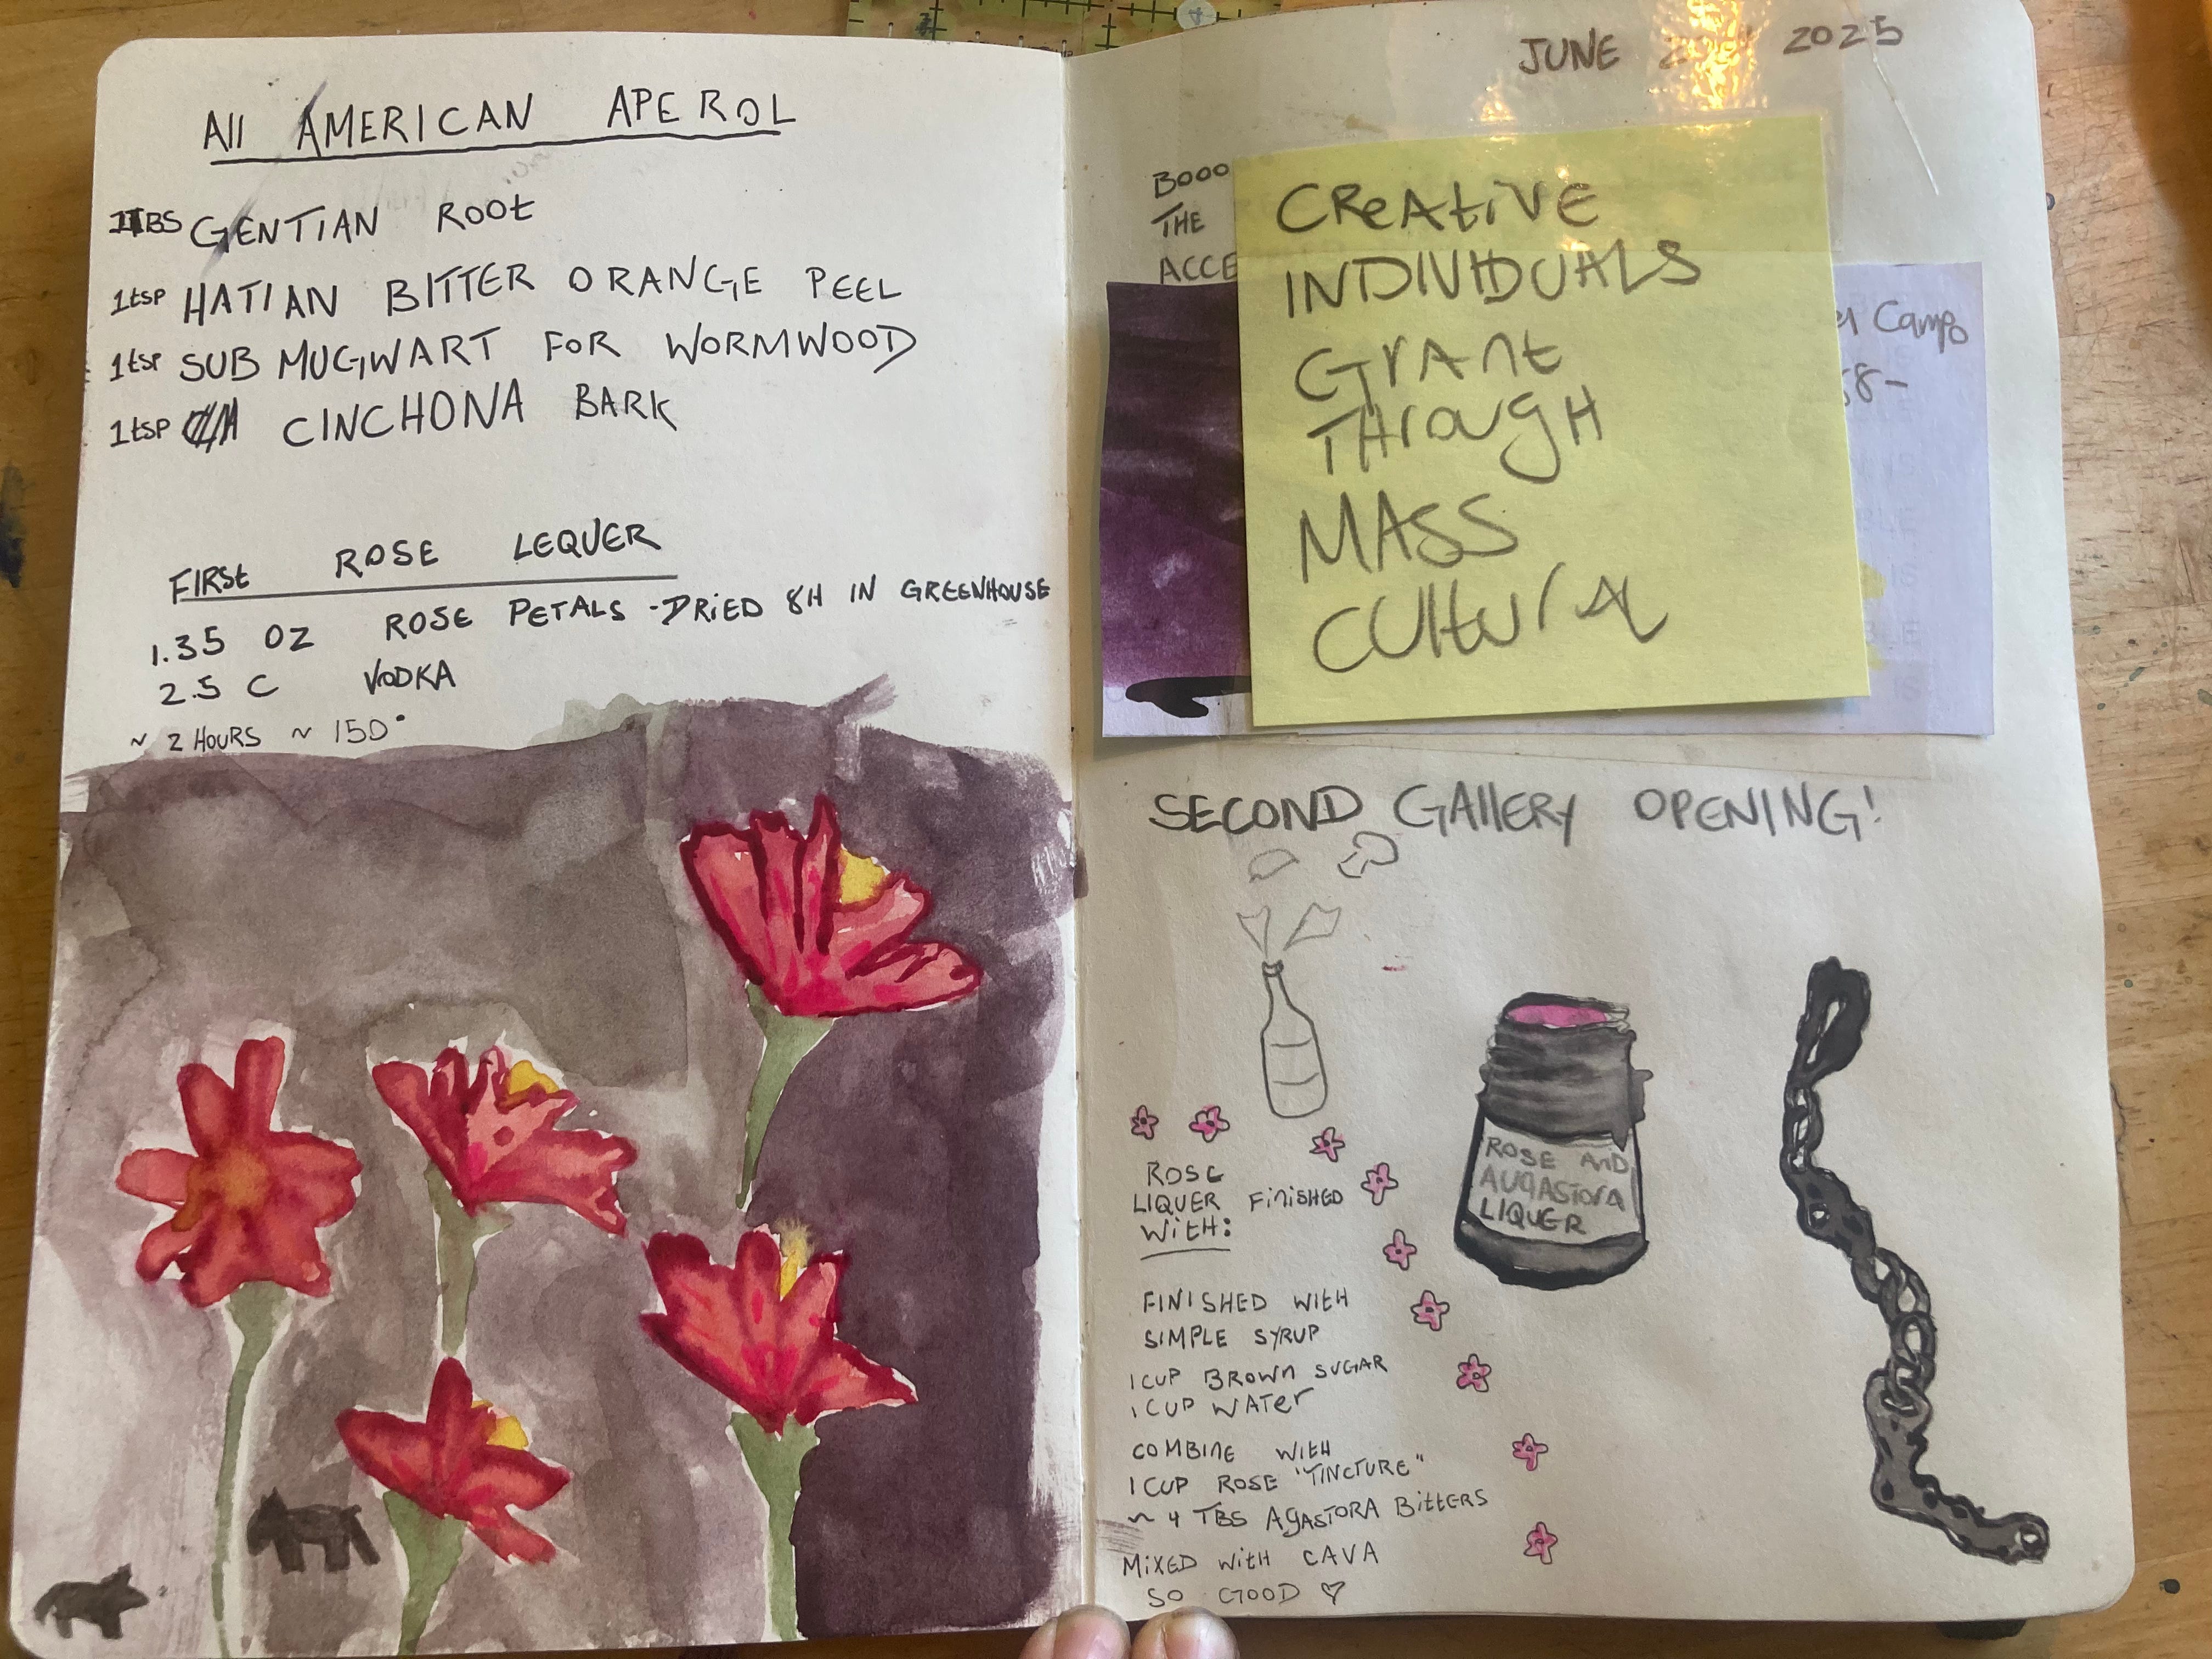 All AMERICAN APEROL
1TBS GENTIAN ROOt
1tsp HATIAN BITTER ORANGE PEEL
1tsp SUB MUGWART FOR WORMWOOD
1tsp CINCHONA BARK
FIRSt ROSE LEQUER
1.35 OZ ROSE PETALS - DRiED 8H IN GREENHOUSE
2.5 C VODKA
~ 2 HOURS ~ 150°
JUNE 2025
BOOO
THE
ACCE
CReAtiVE
INDIVIDUALS
GrAnt
THrougH
MASS
CUltUrAL
Camp
58-
SECOND GAllERY OPENING!
ROSE AND
AUGASTORA
LIQUER
ROSE
LIQUER FiniSHED
WitH:
FINISHED WITH
SIMPLE SYRUP
1 CUP BROWn SUGAR
1 CUP WATEr
COMBINE WITH
1 CUP ROSE "TINCTURE"
~ 4 TBS AGASTORA BittERS
MiXED WitH CAVA
SO GOOD ♡